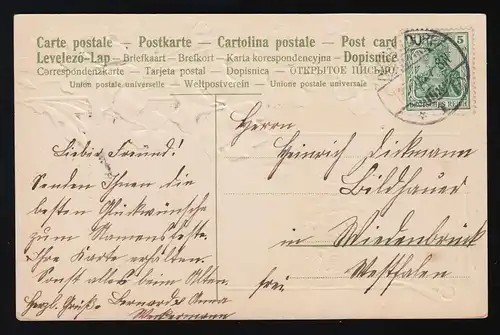 Carte postale - Postkarte - Cartolina postale - Post card
Levelező-Lap - Briefkaart - Brefkort - Karta korespondencyjna - Dopisnice
Correspondenzkarte - Tarjeta postal - Dopisnica - ОТКРЫТОЕ ПИСЬМО
Union postale universelle - Weltpostverein - Unione postale universale
DORF
5
DEUTSCHES REICH
Lieber Freund!
Senden Ihnen die
besten Glückwünsche
zum Namensfeste.
Ihre Karte erhalten.
Sonst alles beim Alten.
Herzl. Grüße Bernard u. Anna
Herrn
Heinrich Dickmann
Bildhauer
in Wiedenbrück
frei. Westfalen